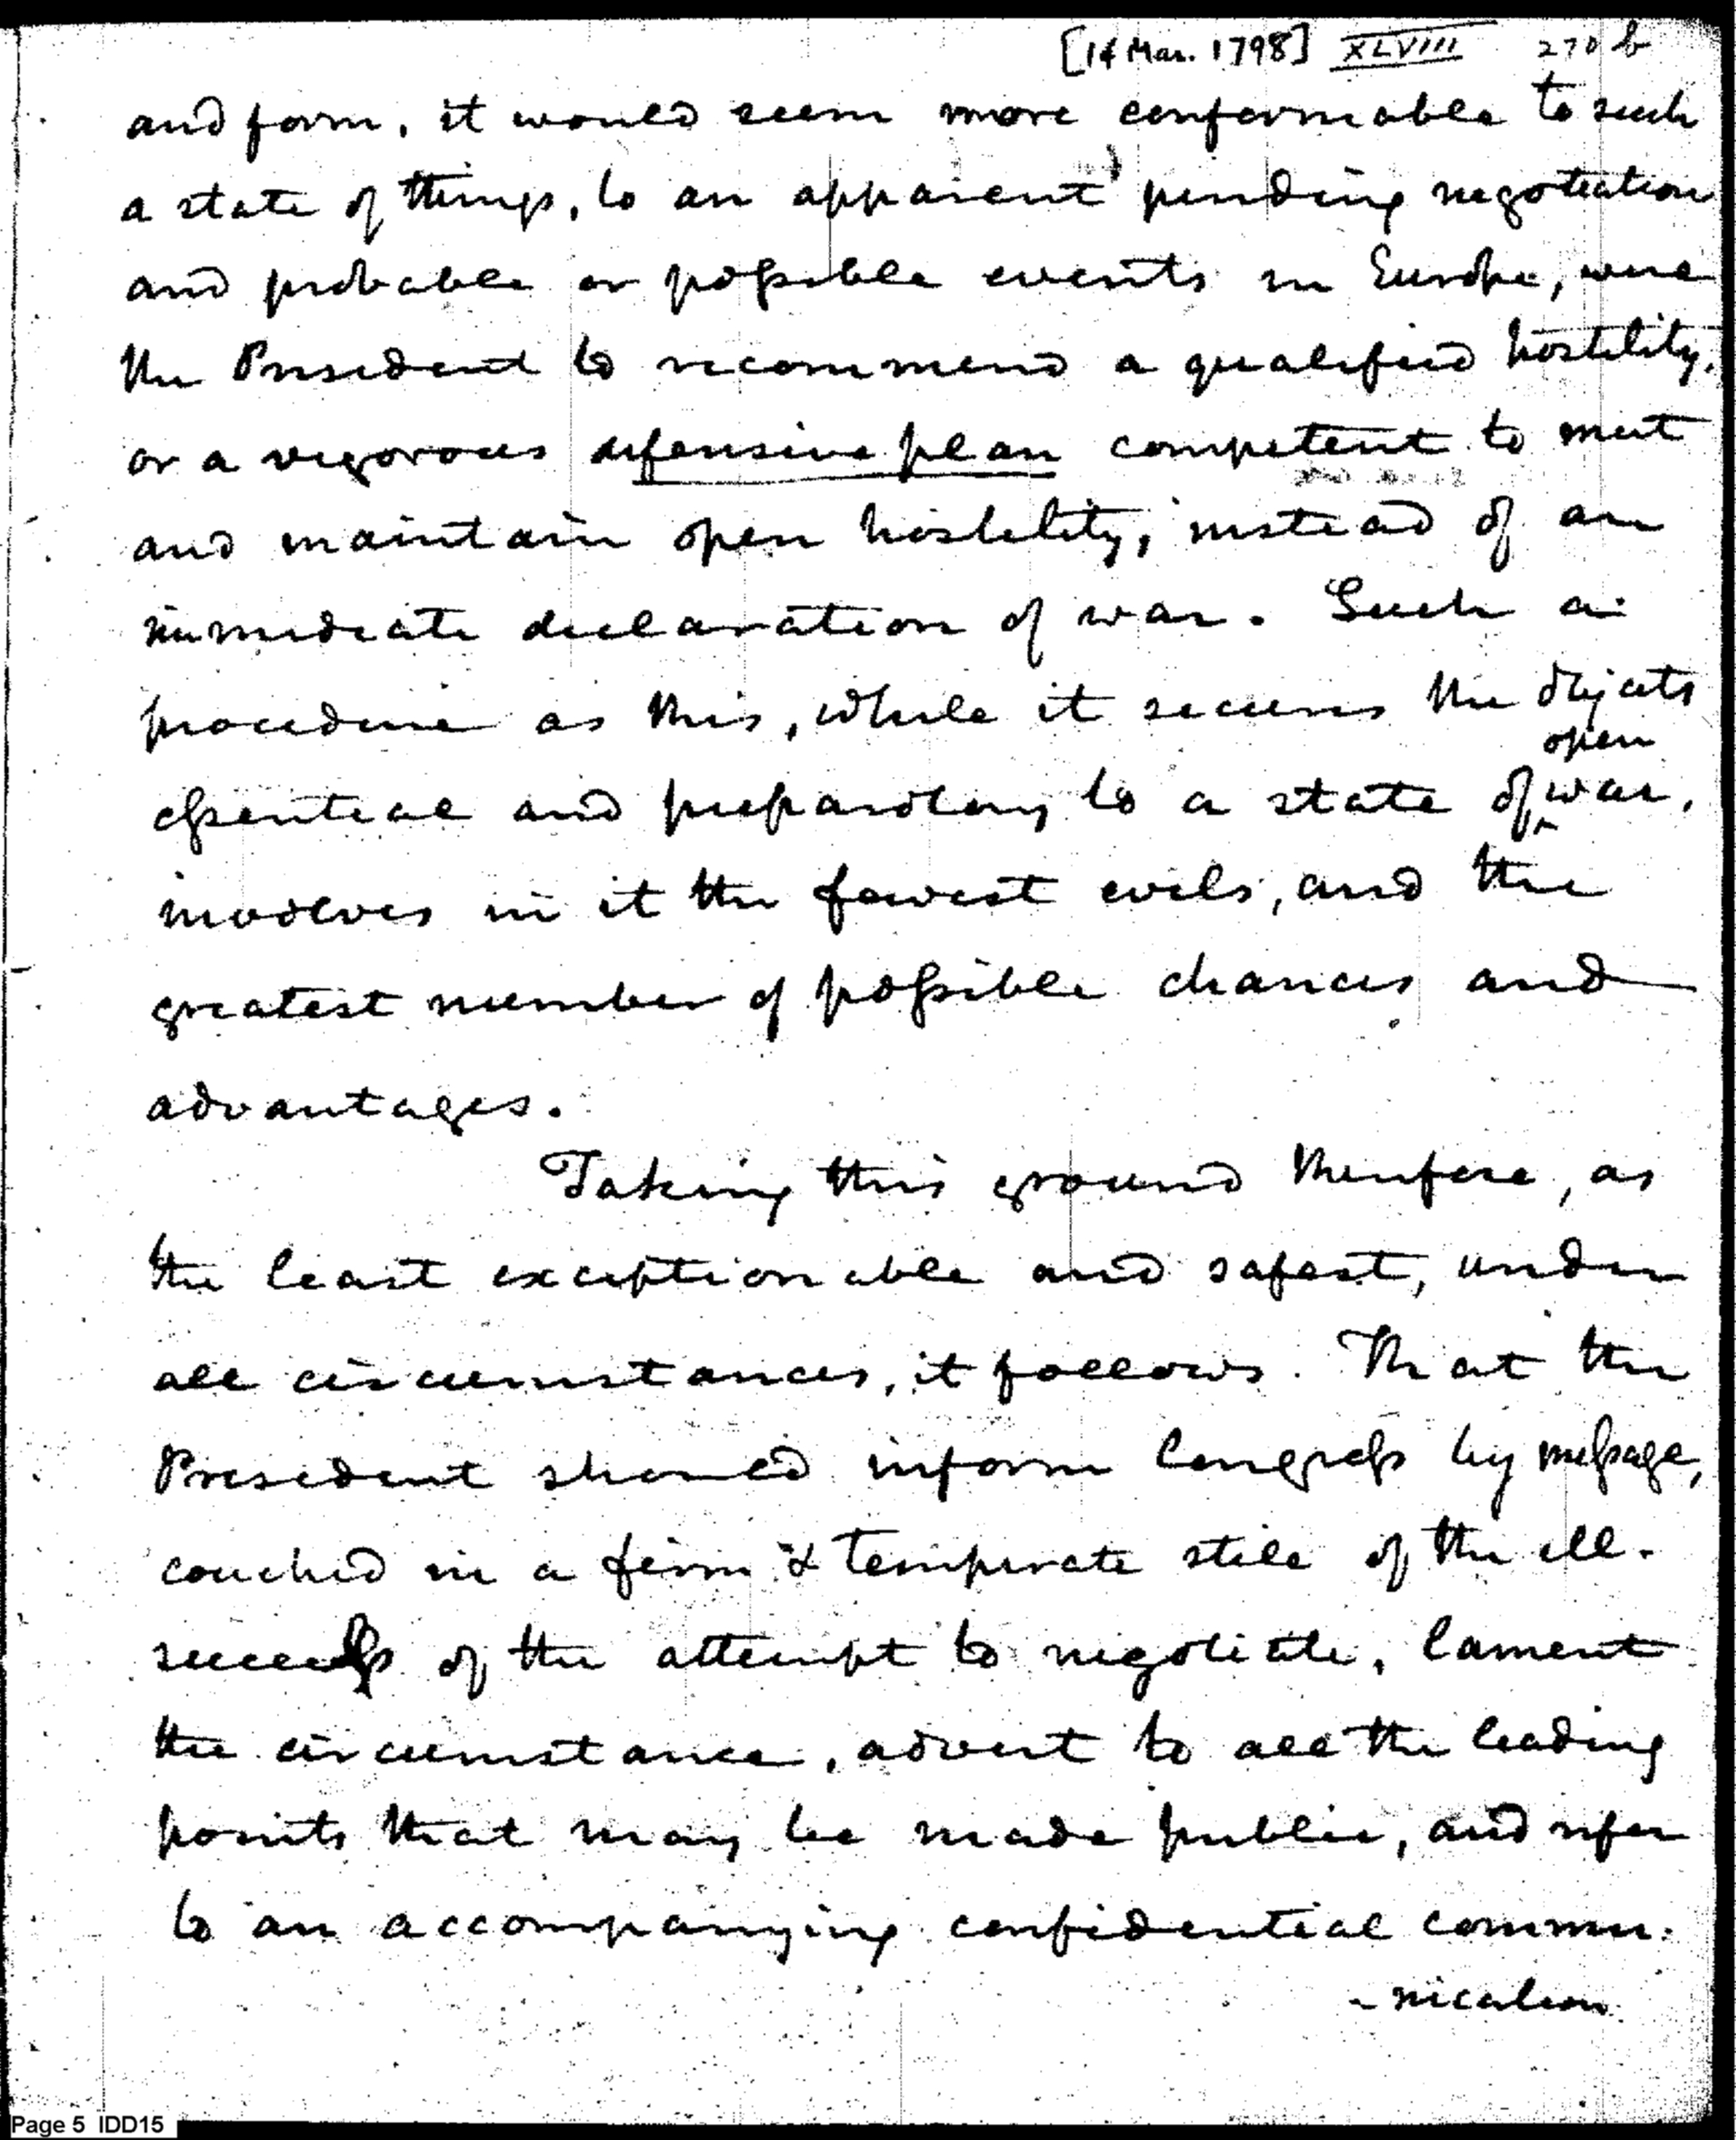 [14 Mar. 1798] XLVIII 270 b
and form, it would seem more conformable to such
a state of things, to an apparent pending negotiation
and probable or possible events in Europe, were
the President to recommend a qualified hostility,
or a vigorous defensive plan competent to meet
and maintain open hostility, instead of an
immediate declaration of war. Such a
procedure as this, while it secures the objects
open
essential and preparatory to a state of ^ war,
involves in it the fewest evils, and the
greatest number of possible chances and
advantages.
Taking this ground therefore, as
the least exceptionable and safest, under
all circumstances, it follows. That the
President should inform Congress by message,
couched in a firm & temperate stile of the ill-
success of the attempt to negotiate, lament
the circumstance, advert to all the leading
points that may be made public, and refer
to an accompanying confidential commu-
-nication
Page 5 IDD15